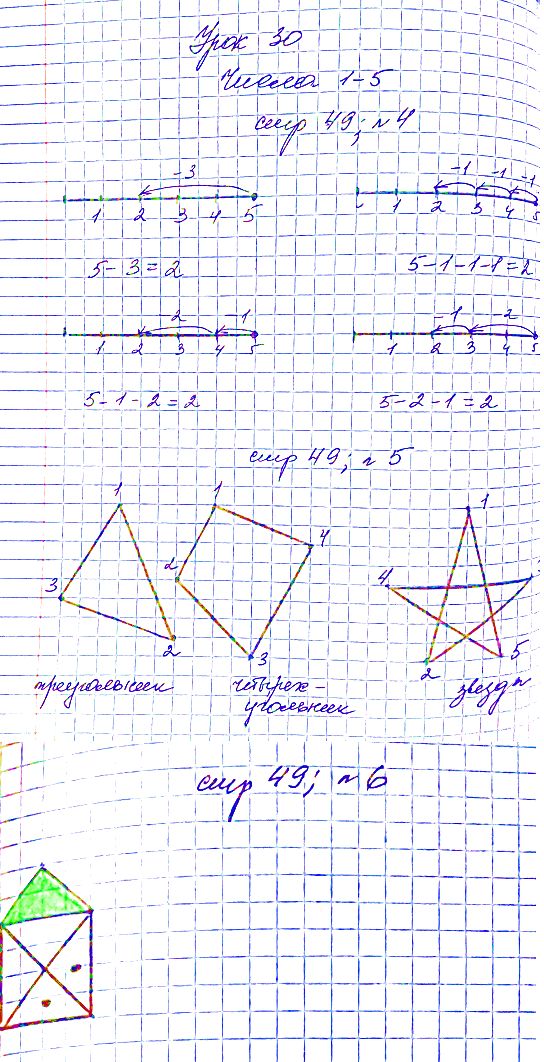 Урок 30
Числа 1-5
стр 49; №4
-3
1 2 3 4 5
-1 -1 -1
1 2 3 4 5
5-3=2
5-1-1-1=2
-2 -1
1 2 3 4 5
-1 -2
1 2 3 4 5
5-1-2=2
5-2-1=2
стр 49; №5
1
3
2
1
4
2
3
1
4
2
5
треугольник
четырех-
угольник
звезда
стр 49; №6